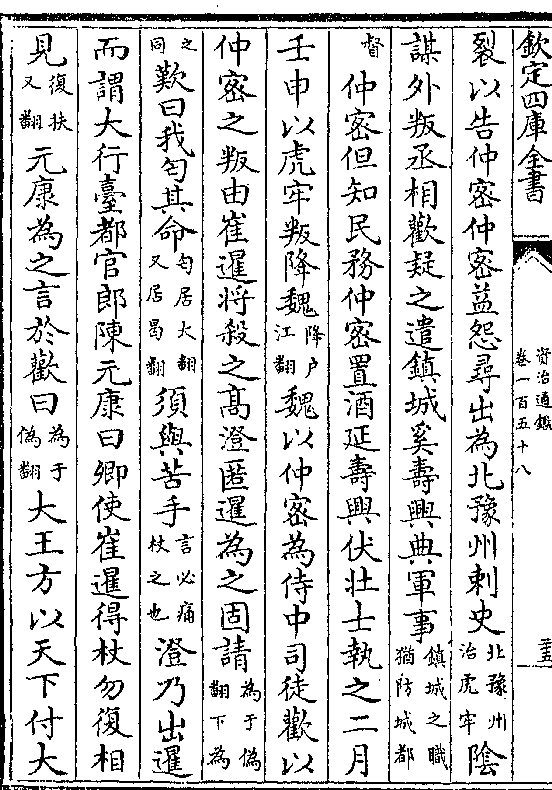 欽定四庫全書
資治通鑑
卷一百五十八
裂以告仲密仲密益怨尋出為北豫州刺史北豫州治虎牢陰
謀外叛丞相歡疑之遣鎮城奚壽興典軍事鎮城之職猶防城都
督仲密但知民務仲密置酒延壽興伏壮士執之二月
壬申以虎牢叛降魏降户江翻魏以仲密為侍中司徒歡以
仲密之叛由崔暹將殺之髙澄匿暹為之固請為于偽翻下為
之同歎曰我匄其命匄居大翻又居曷翻須與苦手言必痛杖之也澄乃出暹
而謂大行臺都官郎陳元康曰卿使崔暹得杖勿復相
見復扶又翻元康為之言於歡曰為于偽翻大王方以天下付大